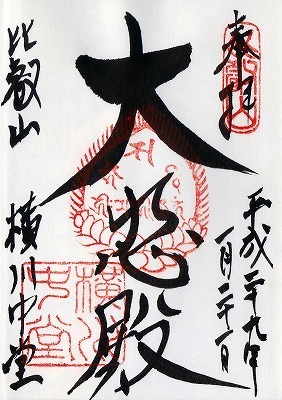 奉拝
平成二十九年
一月二十一日
大悲殿
比叡山 横川中堂
横川
中堂